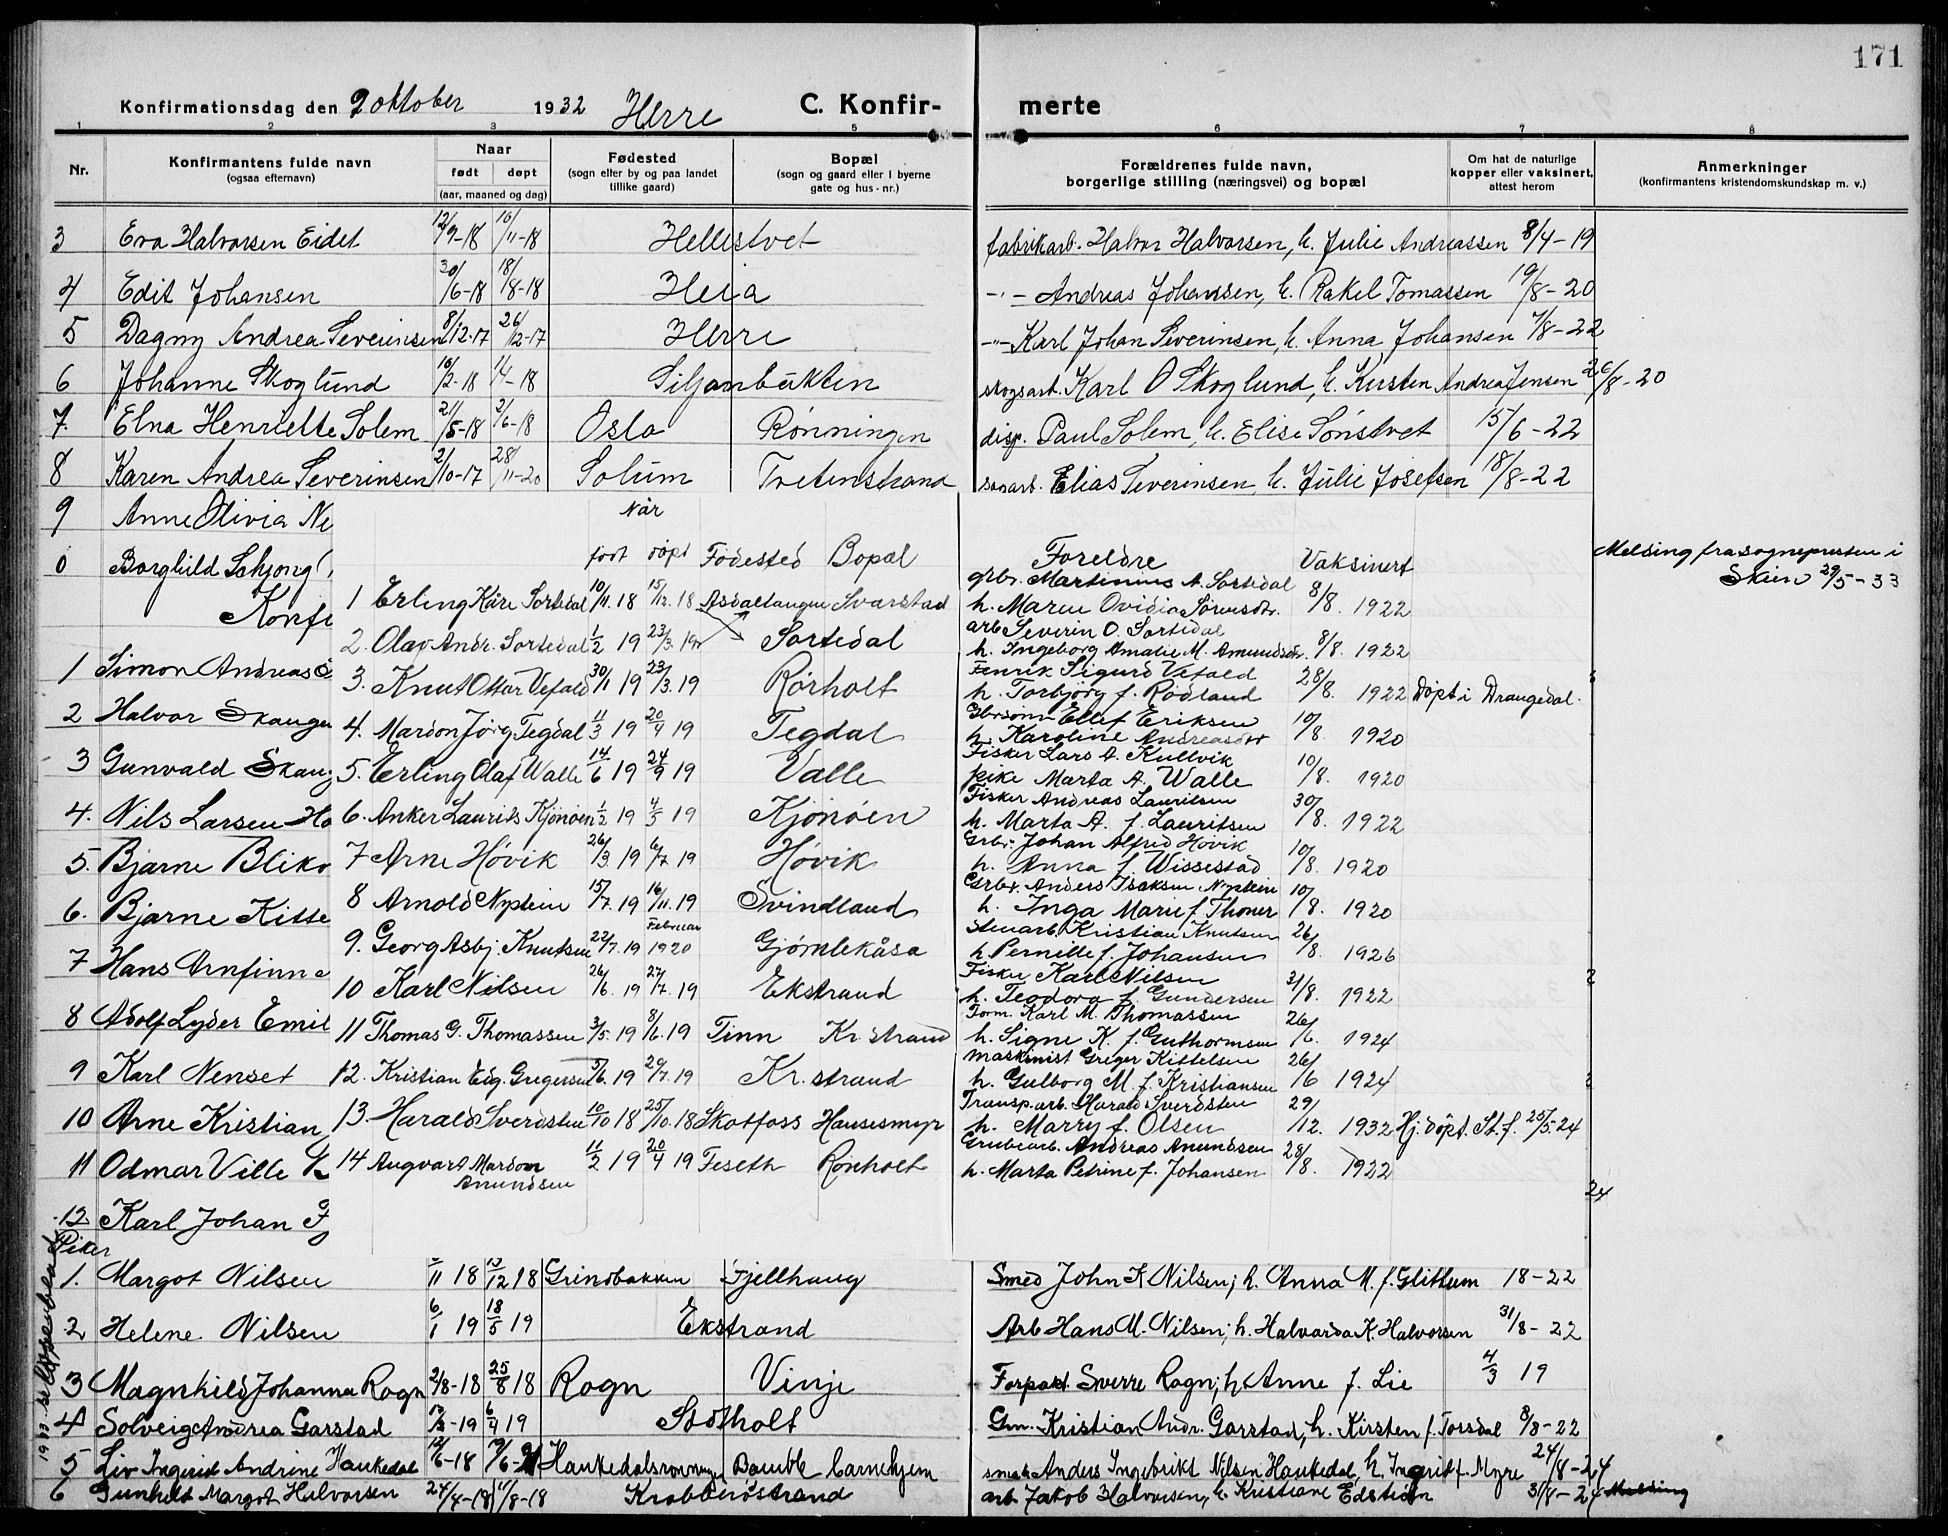 171
Konfirmationsdag den 9 oktober 1932 Herre C. Konfirmerte
1 2 3 5 6 7 8
Nr. Konfirmantens fulde navn (ogsaa efternavn) Naar født døpt (aar, maaned og dag) Fødested (sogn eller by og paa landet tillike gaard) Bopæl (sogn og gaard eller i byerne gate og hus-nr.) Forældrenes fulde navn, borgerlige stilling (næringsvei) og bopæl Om hat de naturlige kopper eller vaksinert, attest herom Anmerkninger (konfirmantens kristendomskundskap m. v.)
3 Eva Halvorsen Eidet 12/9-18 10/11-18 Hellestvet fabrikarb. Halvor Halvorsen, h. Julie Andreassen 8/4-19
4 Edit Johansen 30/6-18 18/8-18 Heia -"- Andreas Johansen, h. Rakel Tomassen 19/8-20
5 Dagny Andrea Severinsen 8/12-17 26/12-17 Herre -"- Karl Johan Severinsen, h. Anna Johansen 7/8-22
6 Johanne Skoglund 10/2-18 1/4-18 Siljanbukten skogsarb. Karl O Skoglund, h. Kirsten Andrea Jensen 26/8-20
7. Elna Henriette Solem 21/5-18 2/6-18 Oslo Rønningen disp. Paul Solem, h. Elise Sønstvet 15/6-22
8 Karen Andrea Severinsen 2/10-17 28/11-20 Solum Tretenstrand Elias Severinsen, h. Julie Josefsen 18/8-22
9 Anne Olivia Ne
0 Borghild Schjong
Konfi
Når
født døpt Fødested Bopæl Foreldre Vaksinert
Melding fra sognepresten i Skien 29/5-33
1 Erling Kåre Sortedal 10/11.18 15/12.18 Asdaltangen Svarstad grbr. Martinius A. Sortedal h. Maren Ovidia Sørensdtr. 8/8. 1922
2. Olav Andr. Sortedal 1/2 19 23/3.19 Sortedal arb Severin O. Sortedal h. Ingeborg Amalie M. Amundsdtr. 8/8. 1922
3. Knut Ottar Vefald 30/1 19 23/3.19 Rørholt Fenrik Sigurd Vefald h. Torbjörg f. Rödland 28/8. 1922 Döpt i Drangedal.
4. Mardon Jörg Tegdal 11/3 19 20/4 19 Tegdal Gbrsönn Ellef Eriksen h. Karoline Andreasdtr 10/8. 1920
5. Erling Olaf Walle 14/6 19 24/9 19 Valle Fisker Lars A. Kullvik pike Marta A. Walle 10/8. 1920
6. Anker Laurits Kjönöen 1/2 19 4/5 19 Kjönöen Fisker Andreas Lauritsen h. Marta A. f. Lauritsen 30/8. 1922
7 Arne Hövik 26/3 19 6/7 19 Hövik Grbr. Johan Alfred Hövik h. Anna f. Wissestad 10/8. 1920
8 Arnold Nystein 15/7.19 16/11.19 Svindland Grbr. Anders Isaksen Nystein h. Inga Marie f. Thoner 10/8. 1920
9. Georg Asbj. Knutsen 22/7.19 Februar 1920 Gjömlekåsa Stenarb. Kristian Knutsen h. Pernille f. Johansen 26/8. 1926
10 Karl Nilsen 26/6.19 27/7.19 Ekstrand Fisker Karl Nilsen h. Teodora f. Gundersen 31/8. 1922
11 Thomas G. Thomassen 3/5.19 8/6.19 Tinn Kr. strand Form. Karl M. Thomassen h. Signe K. f. Guthormsen 26/6. 1924
12. Kristian Edg. Gregersen 5/6.19 20/7.19 Kr. strand Maskinist Greger Kittelsen h. Gulborg M. f. Kristiansen 26/6 1924
13. Harald Sverdsten 10/10 18 25/10.18 Skotfoss Hansesmyr Transp.arb. Harald Sverdsten h. Marry f. Olsen 29/12. 1932 Hj. döpt. St. f. 25/5.24
14 Augvart Mardon Amundsen 11/2 19 20/4 19 Teseth Rørholt Grubearb. Andreas Amundsen h. Marta Petrine f. Johansen 28/8. 1922
1 Simon Andreas
2 Halvor Skaugen
3 Gunvald Skaug
4. Nils Larsen Ho
5. Bjarne Bliko
6. Bjarne Kitte
7 Hans Arnfinn
8 Adolf Lyder Emil
9 Karl Nenset
10 Arne Kristian
11 Odmar Ville
12 Karl Johan
24
Piker
1. Margot Nilsen 11 18 13/12 18 Grindbakken Fjellhaug Smed John K Nilsen; h. Anna M. f. Glittum 18-22
2 Helene Nilsen 6/1 19 18/5 19 Ekstrand Arb Hans M. Nilsen; h. Halvarda K. Halvorsen 31/8-22
3 Magnhild Johanna Rogn 2/8-18 25/8 18 Rogn Vinje Forpakt. Sverre Rogn; h. Anne f. Lie 4/3 19
4 Solveig Andrea Garstad 6/4 19 Stötholt Gm. Kristian Andr. Garstad, h. Kirsten f. Torsdal 8/8-22
5 Liv Ingerid Andrine Haukedal 12/6-18 Haukedalsrønningen Bamble barnehjem Anders Ingebrikt Nilsen Haukedal, h. Ingerid f. Myre 24/8-24
6 Gunhild Margot Halvorsen 24/4-18 11/8-18 Krabberödstrand arb. Jakob Halvorsen, h. Kristiane Edstien 31/8-24 Melding